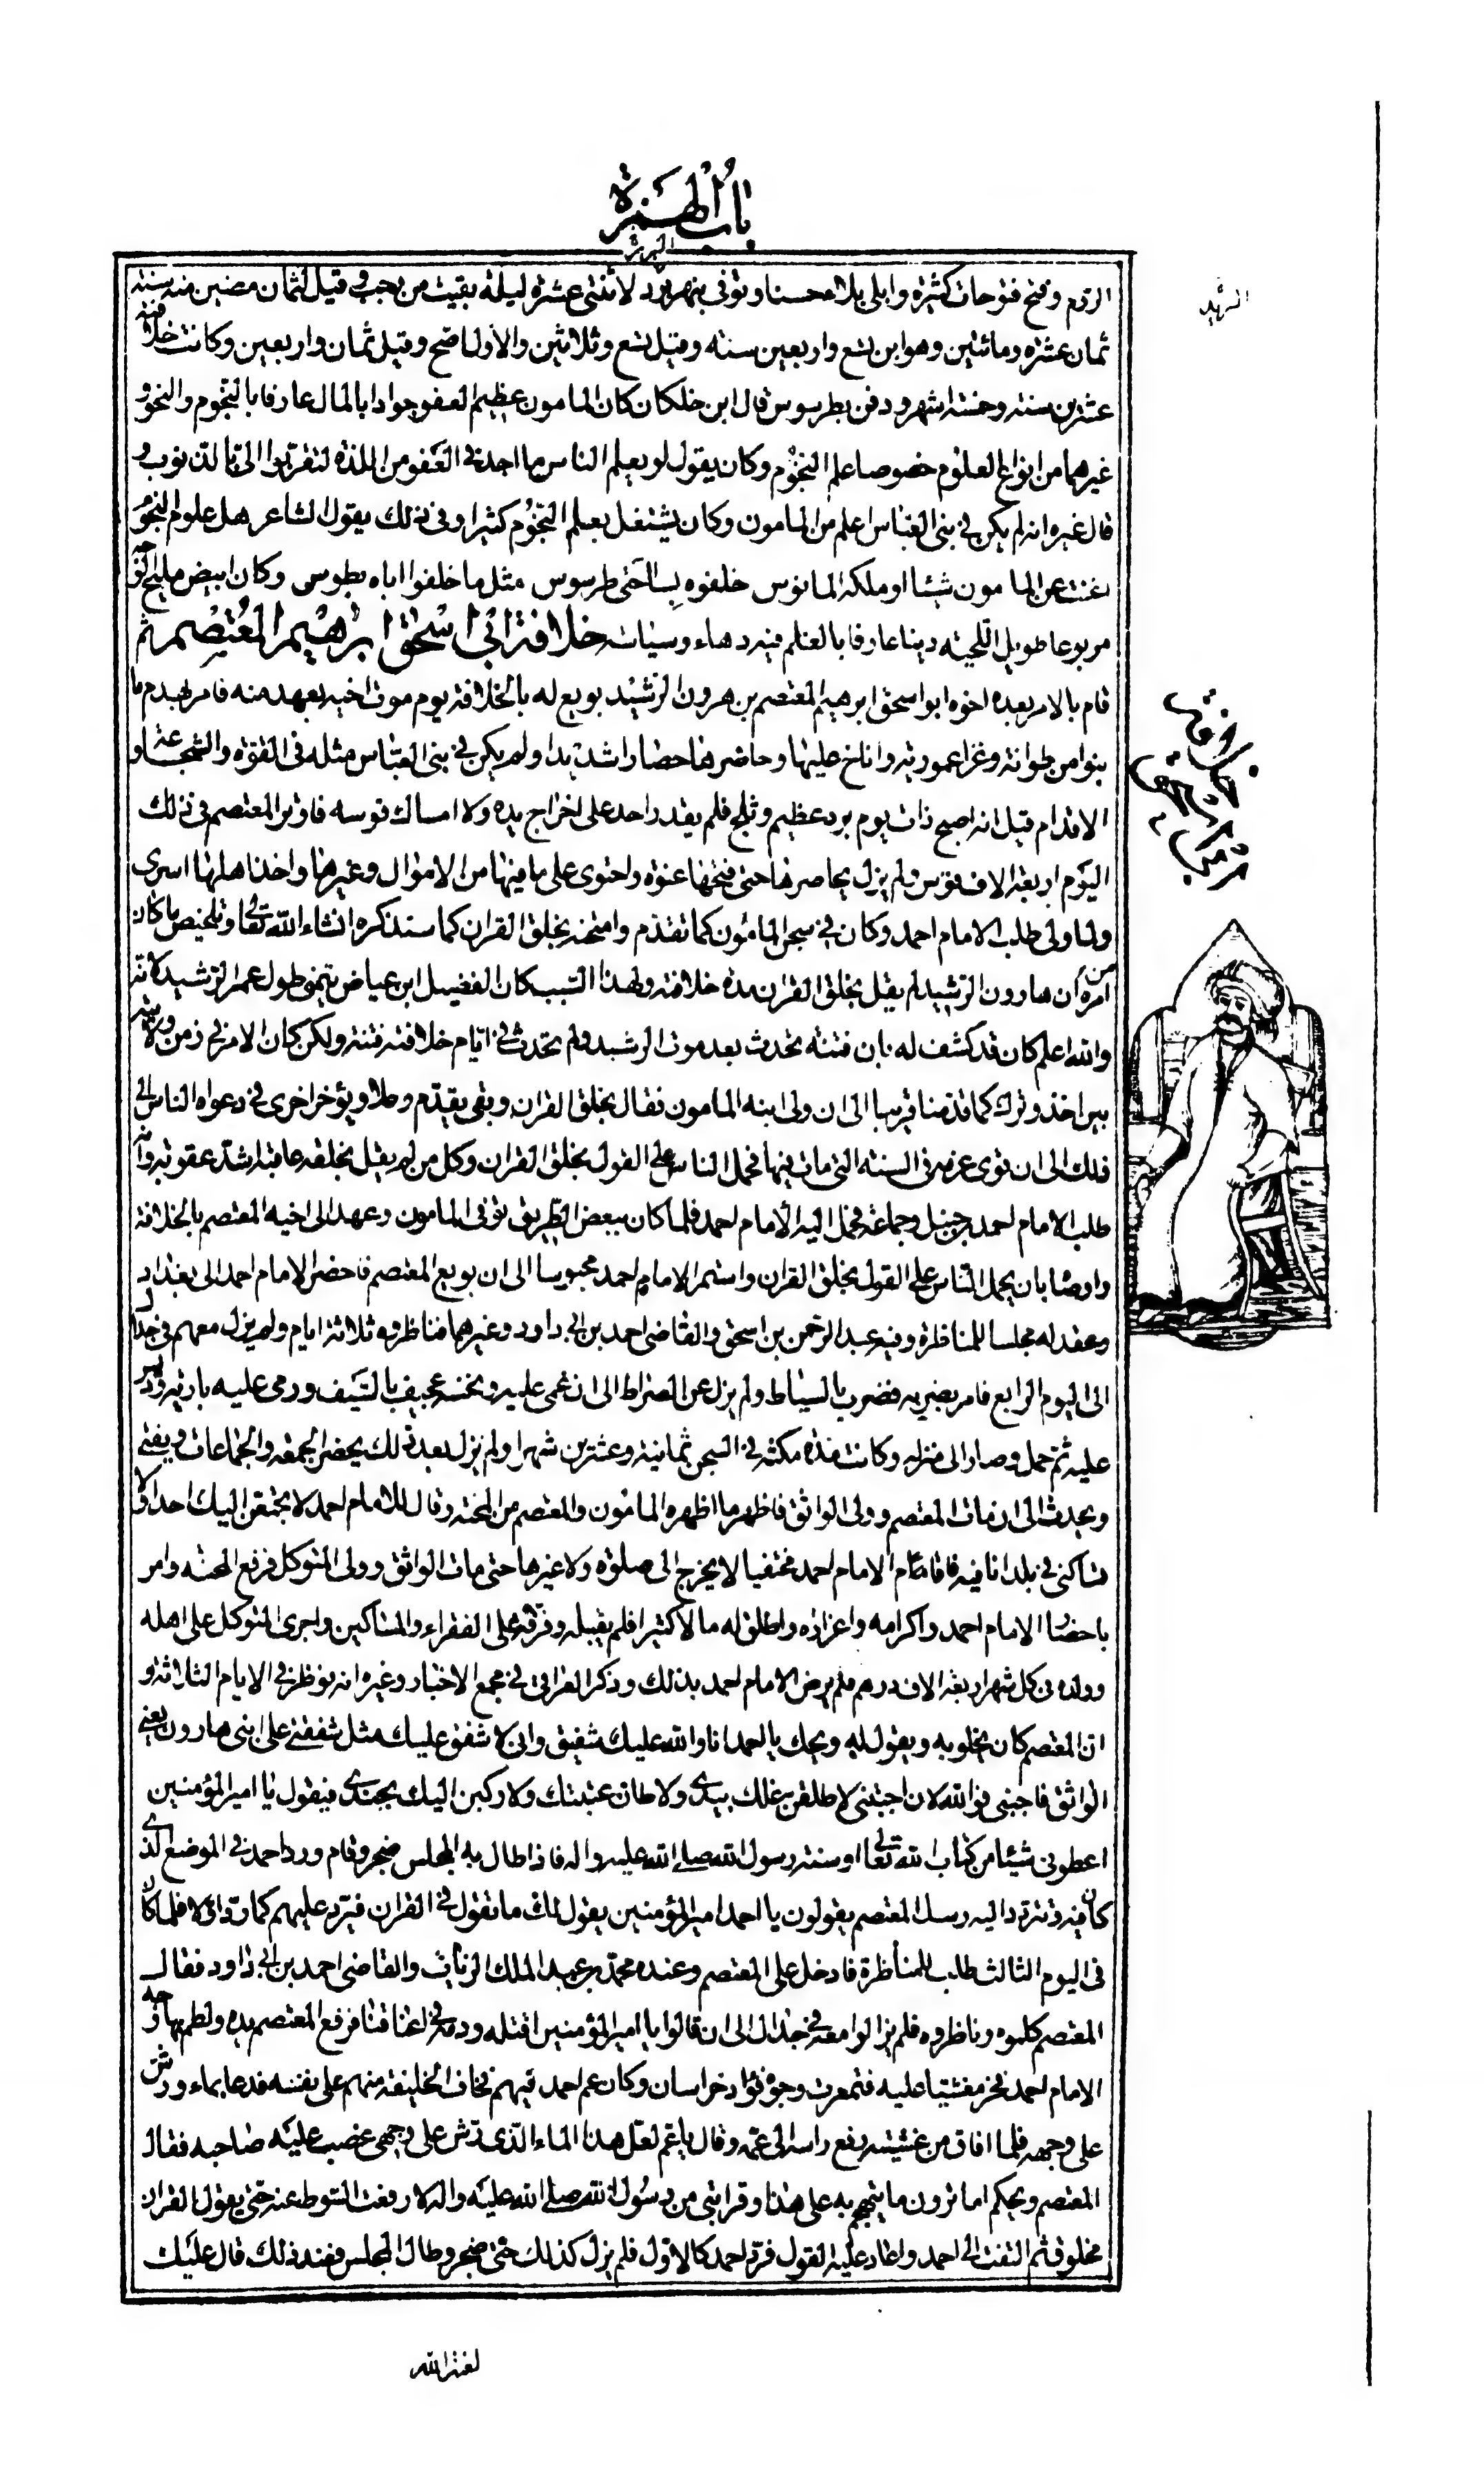 باب الهمزة
الروم وفتح فتوحات كثيرة وابلى بلاء حسنا وتوفى بنهر برد لاثنتى عشرة ليلة بقيت من رجب وقيل لثمان مضين منه سنة
ثمان عشرة ومائتين وهو ابن تسع واربعين سنة وقيل تسع وثلاثين والاول اصح وقيل ثمان واربعين وكانت خلافته
عشرين سنة وخمسة اشهر ودفن بطرسوس قال ابن خلكان كان المامون عظيم العفو جوادا بالمال عارفا بالنجوم والنحو و
غيرهما من انواع العلوم خصوصا علم النجوم وكان يقول لو يعلم الناس ما اجد فى العفو من اللذة لتقربوا الى بالذنوب و
قال غيره انه لم يكن فى بنى العباس اعلم من المامون وكان يشتغل بعلم النجوم كثيرا وفى ذلك يقول الشاعر هل علوم النجوم
اغنت عن المامون شيئا او ملكه المانوس خلفوه بساحتى طرسوس مثل ما خلفوا اباه بطوس وكان ابيض مليح الوجه
مربوعا طويل اللحية دينا عارفا بالعلم فيه دهاء وسياسة خلافة ابى اسحق ابرهيم المعتصم ثم
قام بالامر بعده اخوه ابو اسحق ابرهيم المعتصم بن هرون الرشيد بويع له بالخلافة يوم موت اخيه بعهد منه فامر بهدم ما
بنوا من طوانة وغزا عمورية واناخ عليها وحاصرها حصارا شديدا ولم يكن فى بنى العباس مثله فى القوة والشجاعة و
الاقدام قيل انه اصبح ذات يوم برد عظيم وثلج فلم يقدر احد على اخراج يده ولا امساك قوسه فاوتر المعتصم فى ذلك
اليوم اربعة الاف قوس ولم يزل يحاصرها حتى فتحها عنوة واحتوى على ما فيها من الاموال وغيرها واخذ اهلها اسرى
ولما ولى طلب الامام احمد وكان فى سجن المامون كما تقدم وامتحنه بخلق القران كما سنذكره انشاء الله تعالى وتلخيص ما كان
من امره ان هارون الرشيد لم يقل بخلق القران مدة خلافته ولهذا السبب كان الفضيل ابن عياض يتمنى طول عمر الرشيد لانه
والله اعلم كان قد كشف له بان فتنة تحدث بعد موت الرشيد ولم تحدث فى ايام خلافته فتنة ولكن كان الامر فى زمن ولايته
بين اخذ وترك كما قدمنا قريبا الى ان ولى ابنه المامون فقال بخلق القران وبقى يقدم رجلا ويؤخر اخرى فى دعواه الناس الى
ذلك الى ان قوى عزمه فى السنة التى مات فيها فحمل الناس على القول بخلق القران وكل من لم يقل بخلقه عاقبه اشد عقوبة وانه
طلب الامام احمد بن حنبل وجماعة فحمل اليه الامام احمد فلما كان ببعض الطريق توفى المامون وعهد الى اخيه المعتصم بالخلافة
واوصا بان يحمل الناس على القول بخلق القران واستمر الامام احمد محبوسا الى ان بويع المعتصم فاحضر الامام احمد الى بغداد
وعقد له مجلسا للمناظرة وفيه عبد الرحمن بن اسحق والقاضى احمد بن ابى داود وغيرهما فناظروه ثلاثة ايام ولم يزل معهم فى جدال
الى اليوم الرابع فامر بضربه فضرب بالسياط ولم يزل عن الصراط الى ان غمى عليه ونخسه عجيف بالسيف ورمى عليه بارية وديس
عليه ثم حمل وصار الى منزله وكانت مدة مكثه فى السجن ثمانية وعشرين شهرا ولم يزل بعد ذلك يحضر الجمعة والجماعات ويفتى
ويحدث الى ان مات المعتصم وولى الواثق فاظهر ما اظهره المامون والمعتصم من المحنة وقال للامام احمد لا تجمعن اليك احدا ولا
تساكنى فى بلد انا فيه فاقام الامام احمد مختفيا لا يخرج الى صلوة ولا غيرها حتى مات الواثق وولى المتوكل فرفع المحنة وامر
باحضار الامام احمد واكرامه واعزازه واطلق له مالا كثيرا فلم يقبله وفرقه على الفقراء والمساكين واجرى المتوكل على اهله
وولده فى كل شهر اربعة الاف درهم فلم يرض الامام احمد بذلك وذكر العراقى فى مجمع الاخبار وغيره انه نوظر فى الايام الثلاثة و
ان المعتصم كان يخلو به ويقول له ويحك يا احمد انا والله عليك شفيق وانى لاشفق عليك مثل شفقتى على ابنى هارون يعنى
الواثق فاجبنى فوالله لان اجبتنى لاطلقن غلك بيدى ولاطان عتبتك ولاركبن اليك بجندى فيقول يا امير المؤمنين
اعطونى شيئا من كتاب الله تعالى او سنة رسول الله صلى الله عليه واله فاذا طال به المجلس ضجر وقام ورد احمد فى الموضع الذى
كان فيه وتتردد اليه رسل المعتصم يقولون يا احمد امير المؤمنين يقول لك ما تقول فى القران فيرد عليهم كما رد اولا فلما كان
فى اليوم الثالث طلب للمناظرة فادخل على المعتصم وعنده محمد بن عبد الملك الزيات والقاضى احمد بن ابى داود فقال
المعتصم كلموه وناظروه فلم يزالوا معه فى جدال الى ان قالوا يا امير المؤمنين اقتله ودمه فى اعناقنا فرفع المعتصم يده ولطم بها وجه
الامام احمد فخر مغشيا عليه فتمعرت وجوه قواد خراسان وكان عم احمد فيهم فخاف الخليفة منهم على نفسه فدعا بماء ورش
على وجهه فلما افاق من غشيته رفع راسه الى عمه وقال يا عم لعل هذا الماء الذى رش على وجهى غضب عليه صاحبه فقال
المعتصم ويحكم اما ترون ما يتهجم به على هذا وقرابتى من رسول الله صلى الله عليه واله لا رفعت السوط عنه حتى يقول القران
مخلوق ثم التفت الى احمد واعاد عليه القول فرد احمد كالاول فلم يزل كذلك حتى ضجر وطال المجلس فعند ذلك قال عليك
لعنة الله